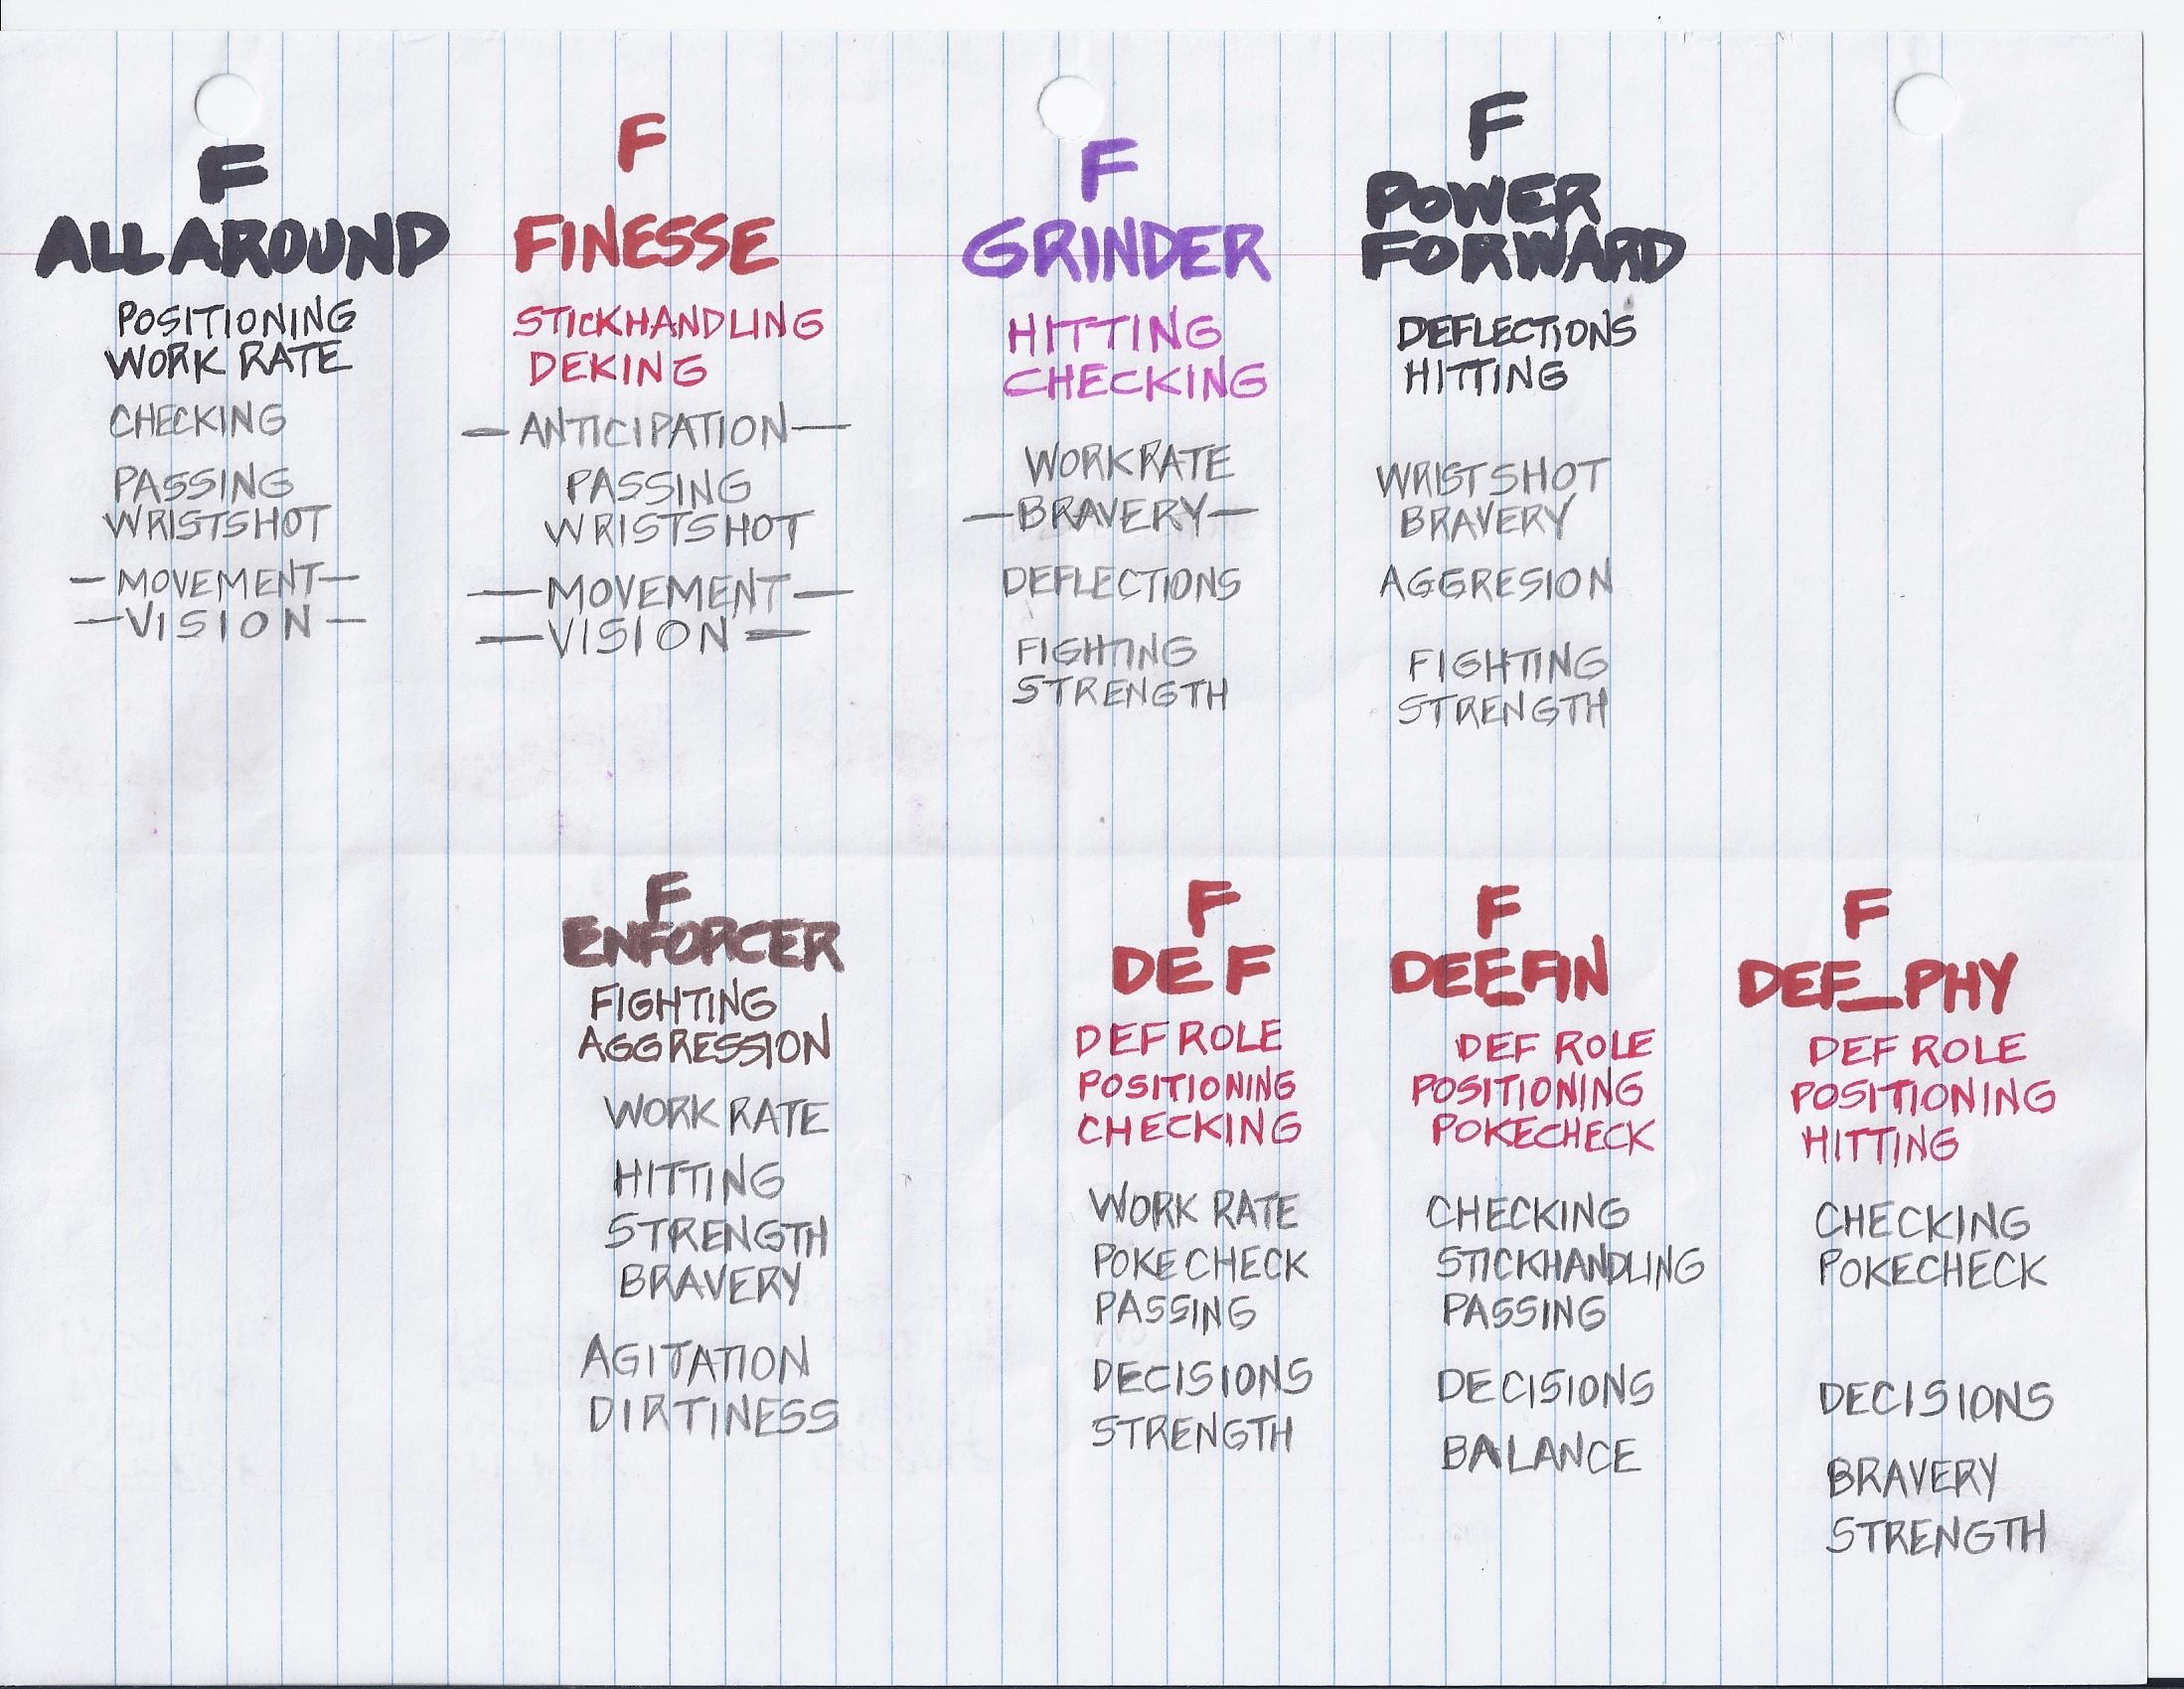 F
ALL AROUND
POSITIONING
WORK RATE
CHECKING
PASSING
WRISTSHOT
— MOVEMENT —
— VISION —
F
FINESSE
STICKHANDLING
DEKING
— ANTICIPATION —
PASSING
WRISTSHOT
— MOVEMENT —
— VISION —
F
GRINDER
HITTING
CHECKING
WORKRATE
— BRAVERY —
DEFLECTIONS
FIGHTING
STRENGTH
F
POWER
FORWARD
DEFLECTIONS
HITTING
WRISTSHOT
BRAVERY
AGGRESION
FIGHTING
STRENGTH
F
ENFORCER
FIGHTING
AGGRESSION
WORK RATE
HITTING
STRENGTH
BRAVERY
AGITATION
DIRTINESS
F
DEF
DEF ROLE
POSITIONING
CHECKING
WORK RATE
POKECHECK
PASSING
DECISIONS
STRENGTH
F
DEF_FIN
DEF ROLE
POSITIONING
POKECHECK
CHECKING
STICKHANDLING
PASSING
DECISIONS
BALANCE
F
DEF_PHY
DEF ROLE
POSITIONING
HITTING
CHECKING
POKECHECK
DECISIONS
BRAVERY
STRENGTH